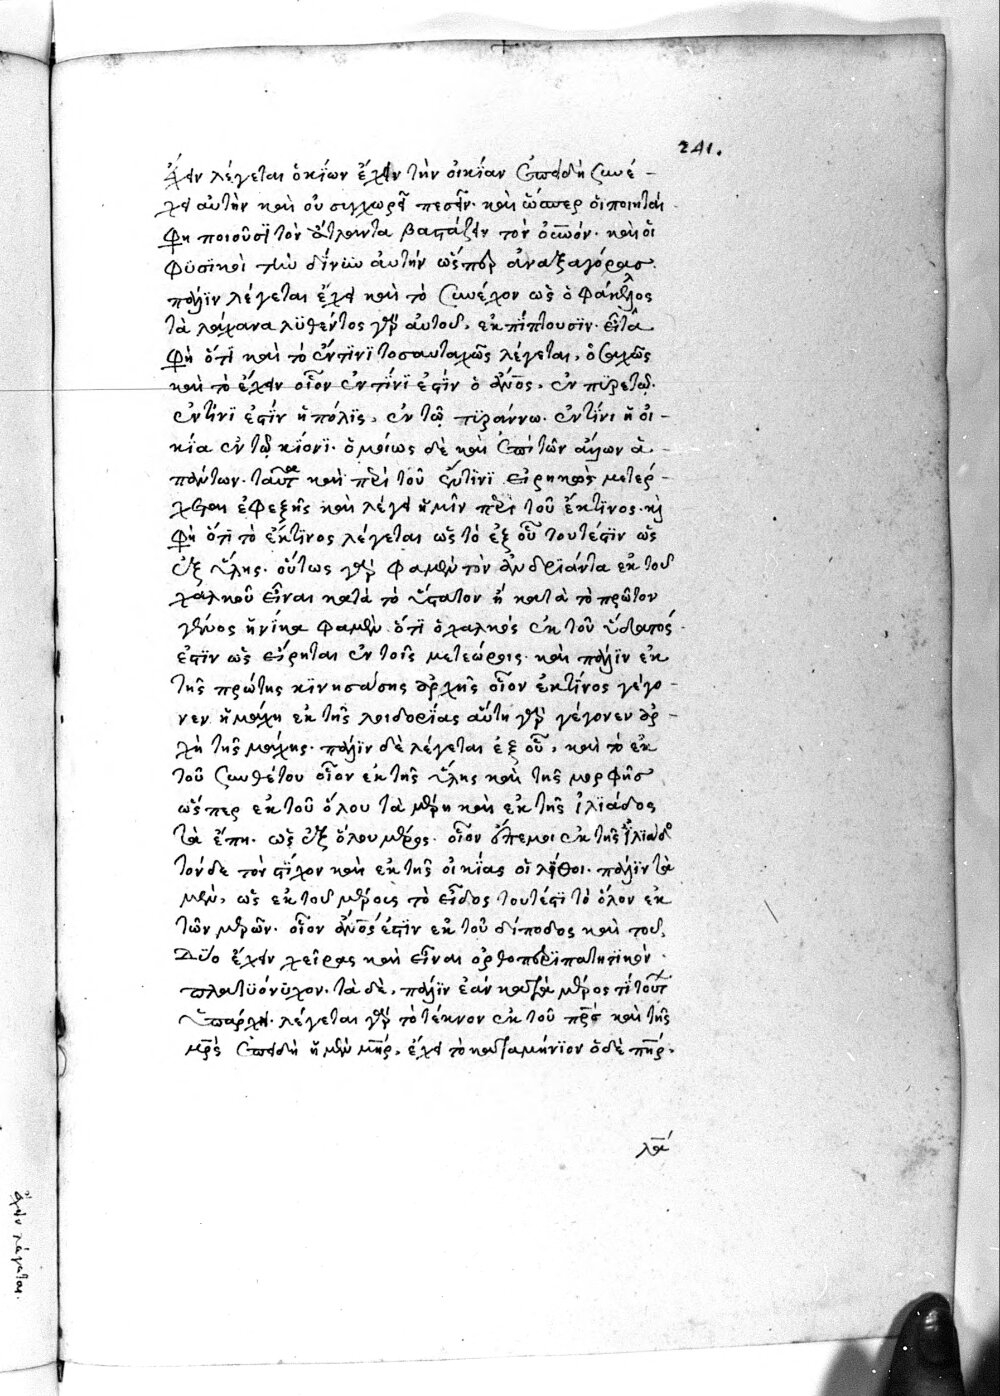 241.
ἔχειν λέγεται ὁ κίων ἔχειν τὴν οἰκίαν ἐπειδὴ συνέ-
χει αὐτὴν καὶ οὐ συγχωρεῖ πεσεῖν. καὶ ὥσπερ οἱ ποιηταί
φη ποιοῦσι τὸν ἄτλαντα βαστάζειν τὸν οὐνόν. καὶ οἱ
φϋσϊκοὶ τὴν δίνην αὐτὴν ὥσπερ ἀναξαγόρας.
πάλϊν λέγεται ἔχειν καὶ τὸ συνέχον ὡς ὁ φάκελλος
τὰ λάχανα λϋθέντος γὰρ αὐτοῦ, ἐκπίπτουσϊν. εἶτά
φη ὅτϊ καὶ τὸ ἔν τϊνϊ τοσαυταχῶς λέγεται, ὁσαχῶς
καὶ τὸ ἔχειν οἷον ἔν τϊνί ἐστϊν ὁ ἄνος, ἐν πϋρετῷ.
ἔν τϊνϊ ἐστϊν ἡ πόλϊς, ἐν τῷ τϋράννω. ἔν τϊνι ἡ οἰ-
κία ἐν τῷ κίονϊ. ὁμοίως δὲ καὶ ἐπὶ τῶν ἄλλων ἁ-
πάντων. ταῦτα καὶ περὶ τοῦ ἔν τϊνϊ εἰρηκὼς μετέρ-
χεται ἐφεξῆς καὶ λέγει ἡμῖν περὶ τοῦ ἔκ τϊνος. καὶ
φη ὅτϊ τὸ ἔκ τϊνος λέγεται ὡς τὸ ἐξ οὗ τουτέστϊν ὡς
ἐξ ὕλης. οὕτως γὰρ φαμὲν τὸν ἀνδρϊάντα ἐκ τοῦ
χαλκοῦ εἶναι κατὰ τὸ ὕστατον ἢ κατὰ τὸ πρῶτον
γένος ἡνίκα φαμὲν ὅτϊ ὁ χαλκὸς ἐκ τοῦ ὕδατός
ἐστϊν ὡς εἴρηται ἐν τοῖς μετεώροις. καὶ πάλϊν ἐκ
τῆς πρώτης κϊνησάσης ἀρχῆς οἷον ἐκ τίνος γέγο-
νεν ἡ μάχη ἐκ τῆς λοιδορίας αὕτη γὰρ γέγονεν ἀρ-
χὴ τῆς μάχης. πάλϊν δὲ λέγεται ἐξ οὗ, καὶ τὸ ἐκ
τοῦ συνθέτου οἷον ἐκ τῆς ὕλης καὶ τῆς μορφῆς
ὥσπερ ἐκ τοῦ ὅλου τὰ μέρη καὶ ἐκ τῆς ἰλϊάδος
τὰ ἔπη. ὡς ἐξ ὅλου μέρος. οἷον εἰπέ μοι ἐκ τῆς ἰλϊάδος
τόνδε τὸν στϊχον καὶ ἐκ τῆς οἰκίας οἱ λίθοι. πάλϊν τὰ
μὲν, ὡς ἐκ τοῦ μέρους τὸ εἶδος τουτέστϊ τὸ ὅλον ἐκ
τῶν μερῶν. οἷον ἄνος ἐστϊν ἐκ τοῦ δίποδος καὶ τοῦ,
δύο ἔχειν χεῖρας καὶ εἶναι ὀρθοπερϊπατητϊκὸν.
πλατϋόνϋχον. τὰ δὲ, πάλϊν ἐὰν κατὰ μέρος τϊ τούτων
ὑπάρχη. λέγεται γὰρ τὸ τέκνον ἐκ τοῦ πρσ καὶ τῆς
μρς ἐπειδὴ ἡ μὲν μηρ, ἔχει τὸ καταμήνϊον ὁ δὲ πηρ.
ἔχειν λέγεται.